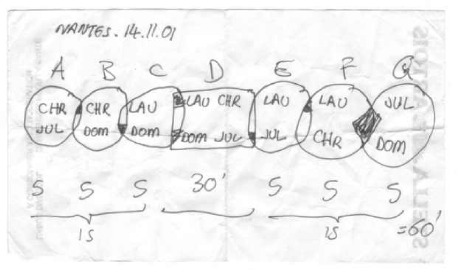 NANTES. 14.11.01
A B C D E F G
CHR CHR LAU LAU CHR LAU LAU JUL
JUL DOM DOM DOM JUL JUL CHR DOM
5 5 5 30' 5 5 5
15 15 =60'